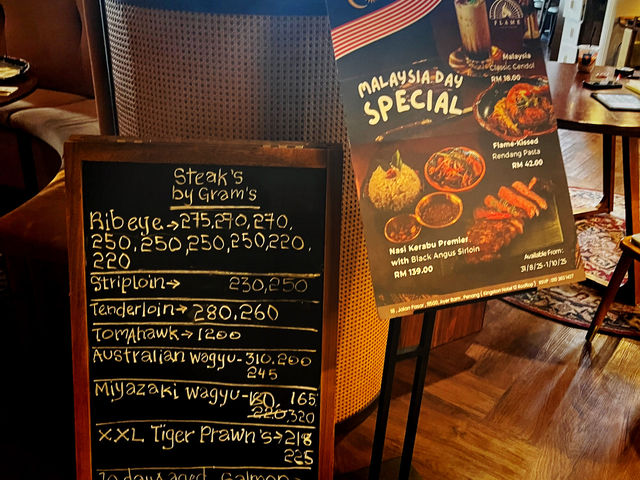 Steak's
by Gram's
Ribeye→275,270,270,
250,250,250,250,220,
220
Striploin→ 230,250
Tenderloin→ 280,260
Tomahawk→1200
Australian Wagyu-310,200
245
Miyazaki Wagyu-180, 165
220,320
XXL Tiger Prawn's→218
225
10 days aged Salmon
FLAME
Malaysia
Classic Cendol
RM 18.00
MALAYSIA DAY
SPECIAL
Flame-Kissed
Rendang Pasta
RM 42.00
Nasi Kerabu Premier
with Black Angus Sirloin
RM 139.00
Available From:
31/8/25-1/10/25